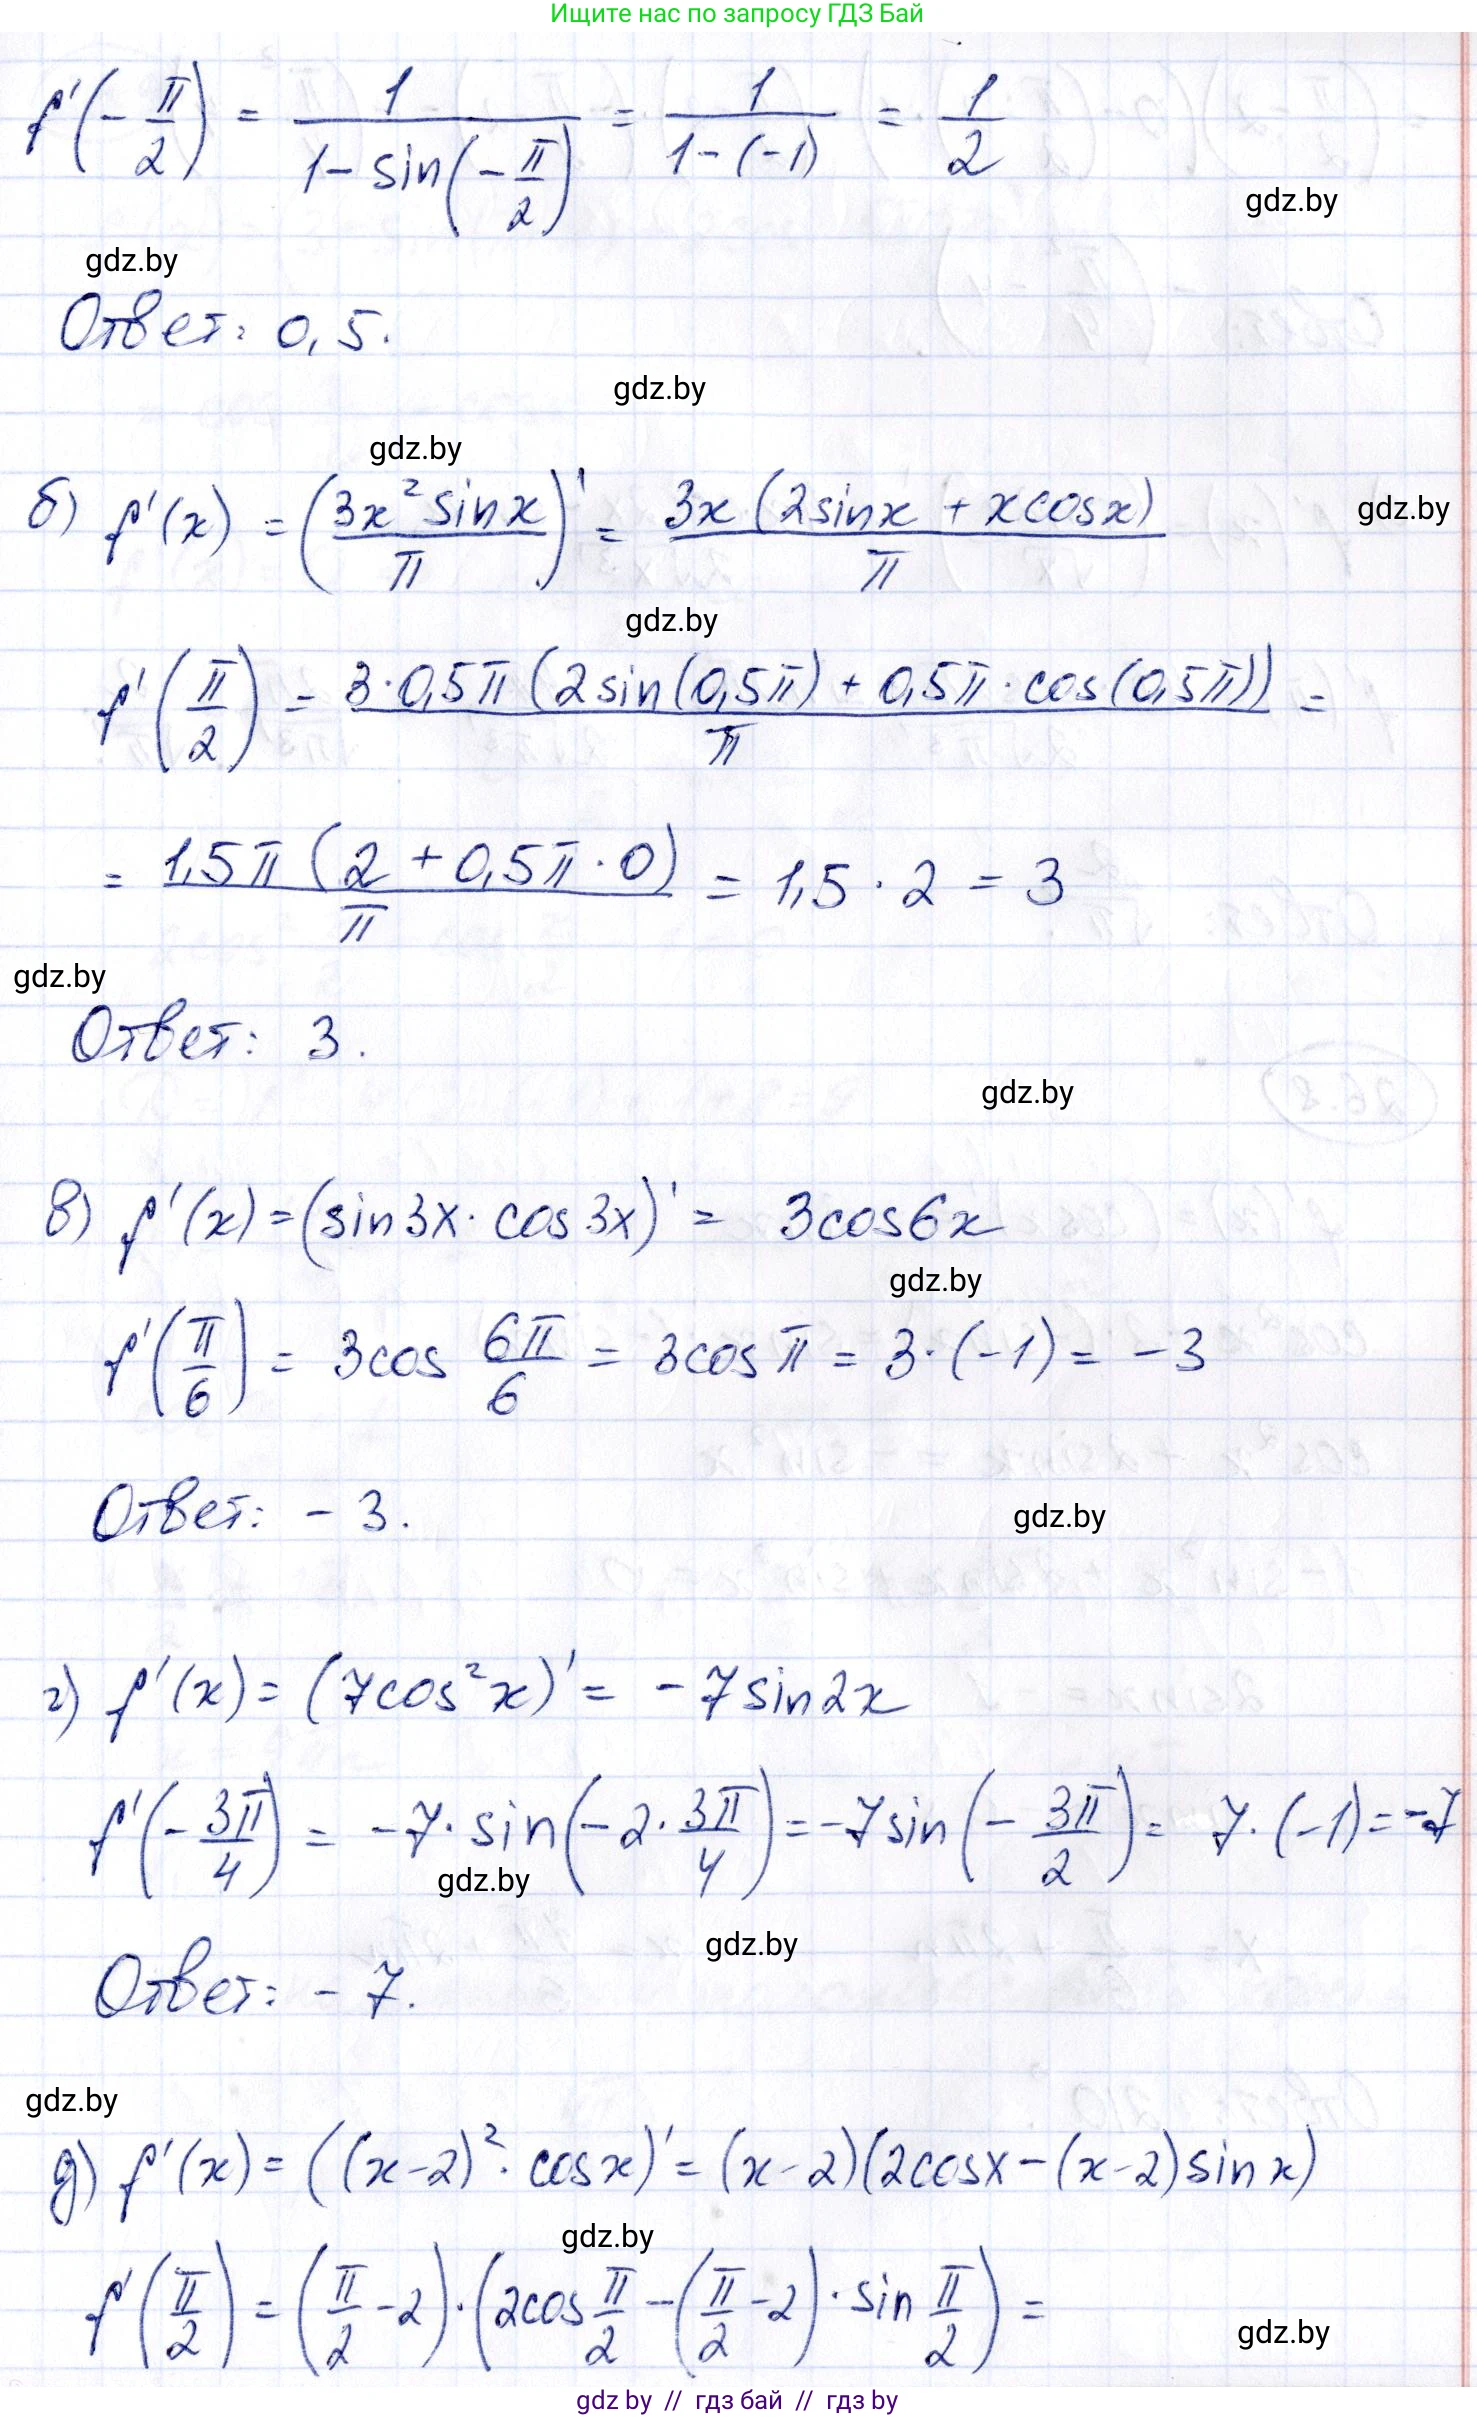 Ищите нас по запросу ГДЗ Бай
f'(-π/2) = 1/(1-sin(-π/2)) = 1/(1-(-1)) = 1/2
gdz.by
gdz.by
Ответ: 0,5.
gdz.by
gdz.by
б) f'(x) = (3x² sinx/π)' = 3x(2sinx + xcosx)/π
gdz.by
gdz.by
f'(π/2) = 3·0,5π(2sin(0,5π) + 0,5π·cos(0,5π))/π =
= 1,5π(2+0,5π·0)/π = 1,5·2 = 3
gdz.by
Ответ: 3.
gdz.by
в) f'(x)=(sin3x·cos3x)' = 3cos6x
gdz.by
f'(π/6) = 3cos 6π/6 = 3cosπ = 3·(-1) = -3
Ответ: -3.
gdz.by
г) f'(x) = (7cos²x)' = -7sin2x
f'(-3π/4) = -7·sin(-2·3π/4) = -7sin(-3π/2) = 7·(-1) = -7
gdz.by
gdz.by
Ответ: -7.
gdz.by
д) f'(x) = ((x-2)²·cosx)' = (x-2)(2cosx-(x-2)sinx)
gdz.by
f'(π/2) = (π/2-2)·(2cos π/2-(π/2-2)·sin π/2) =
gdz.by
gdz by // гдз бай // гдз by